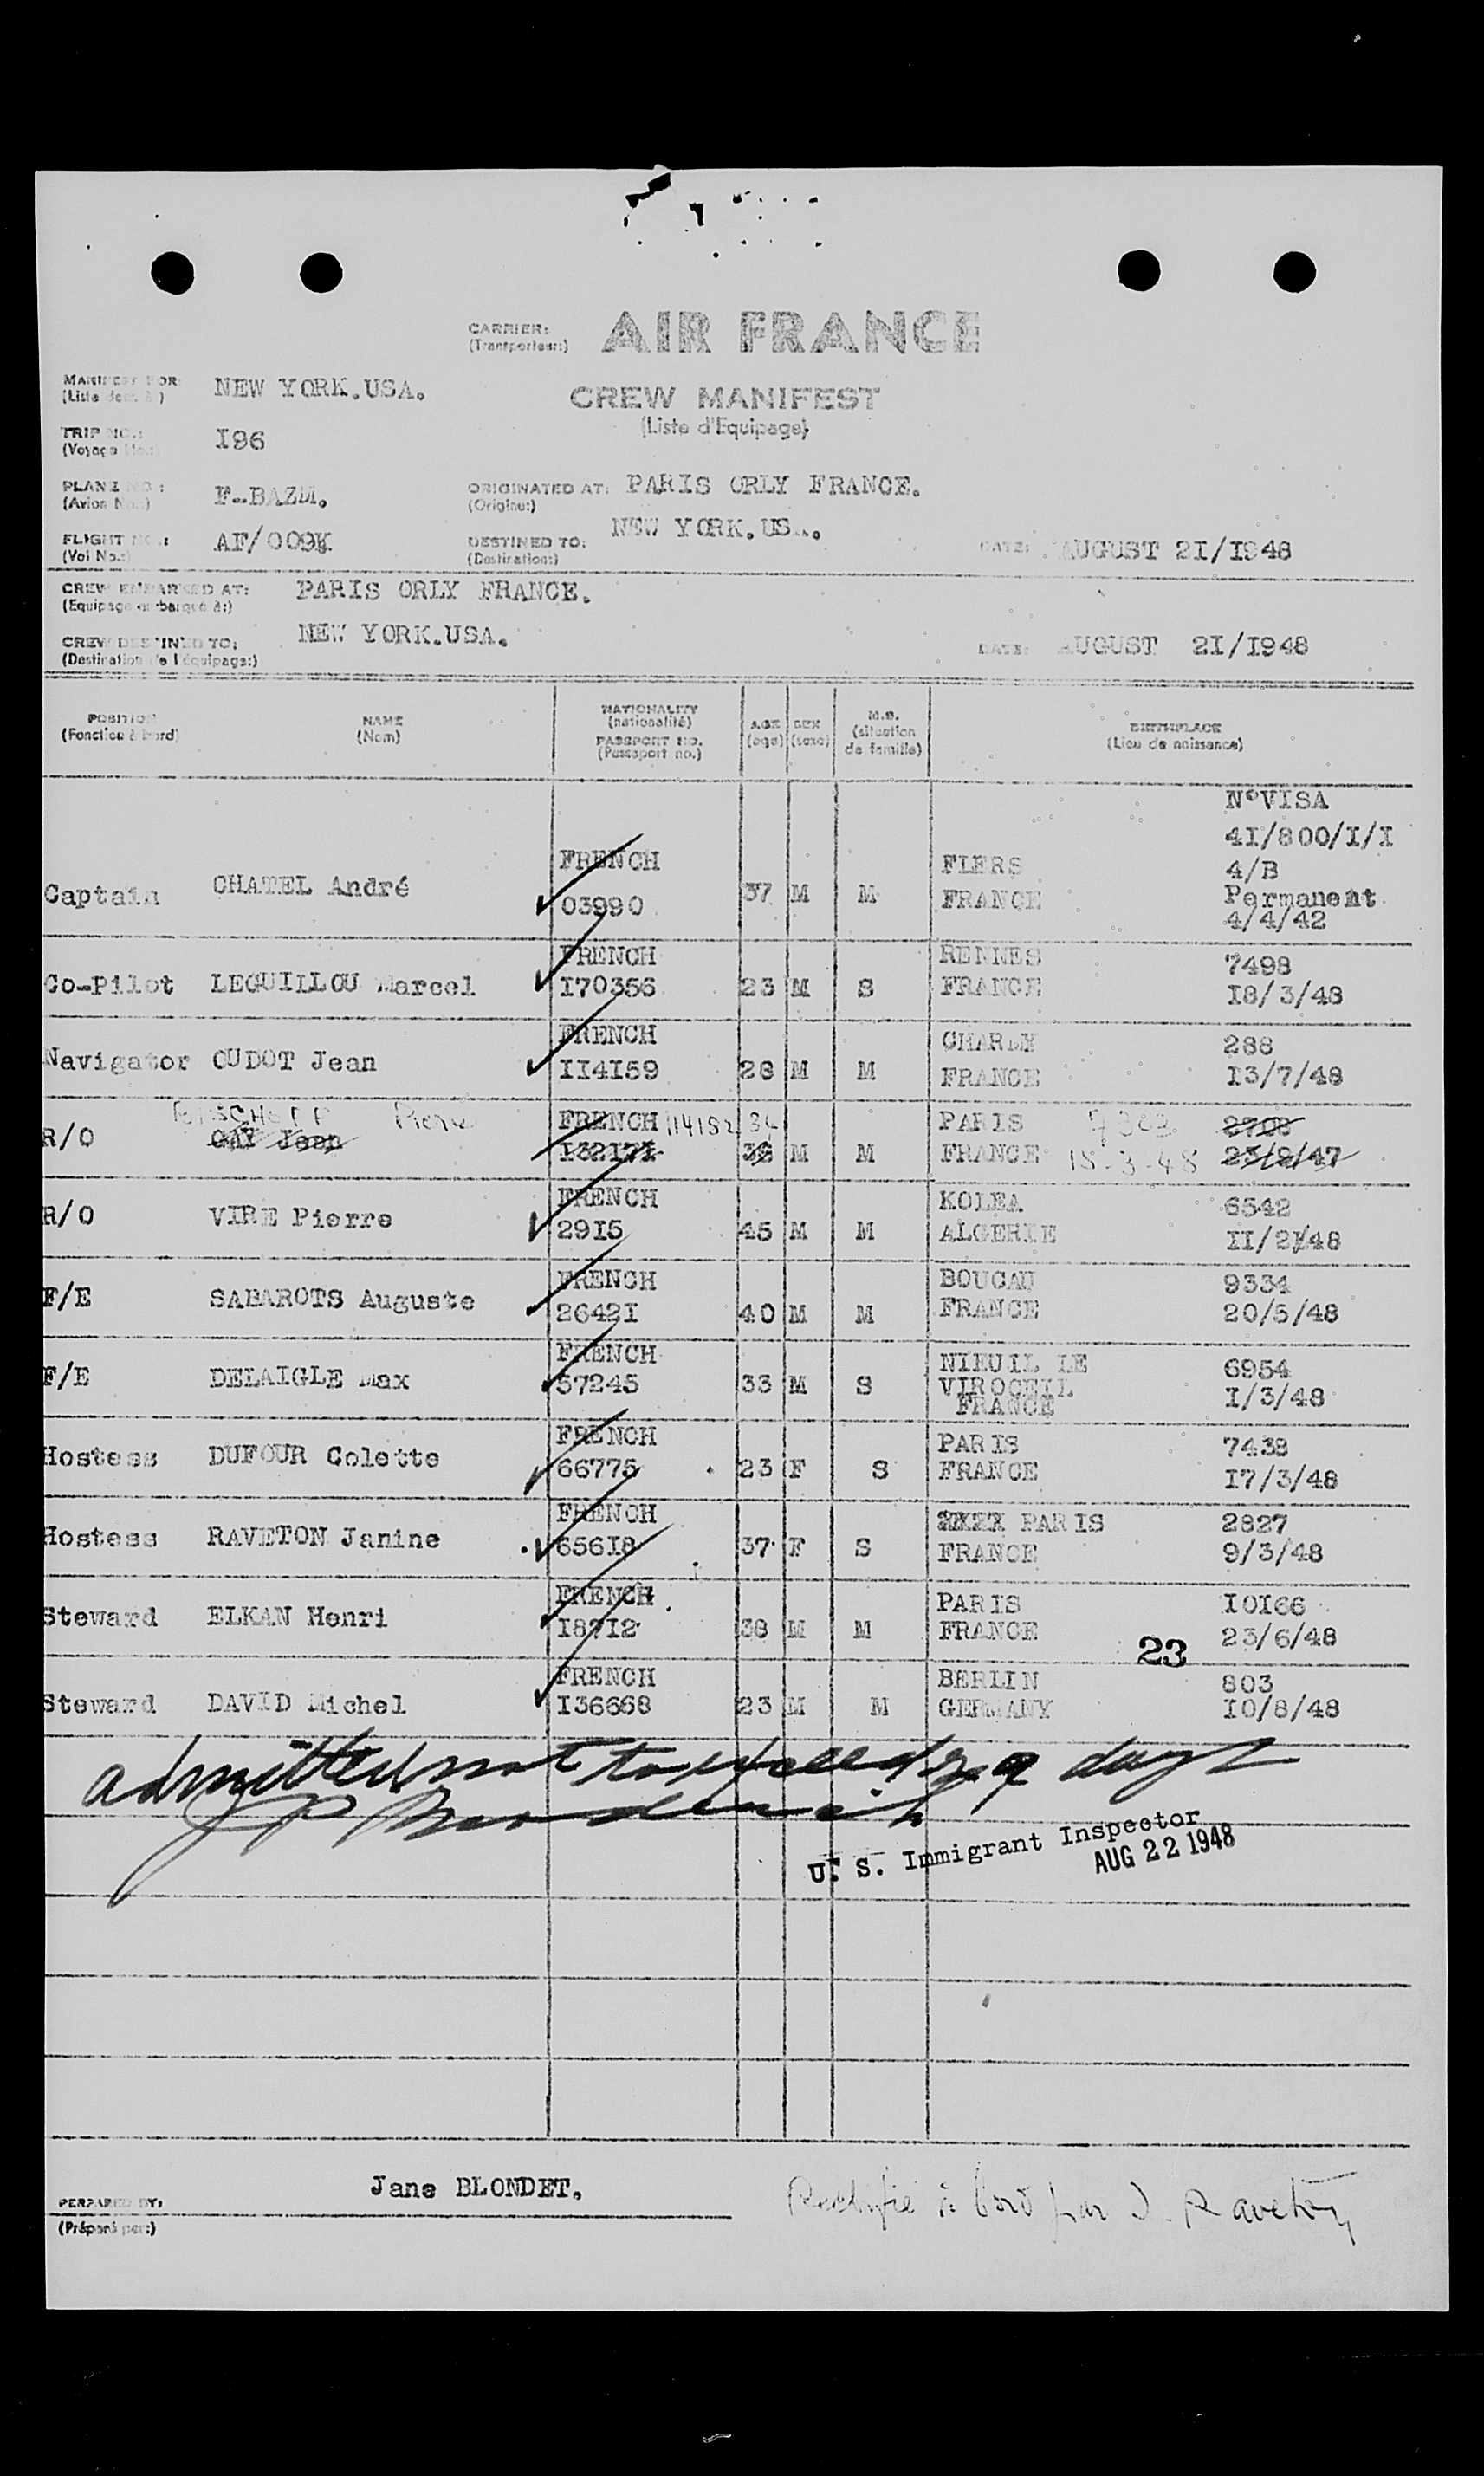 CARRIER: AIR FRANCE
(Transporteur:)
MANIFEST FOR NEW YORK.USA. CREW MANIFEST
(Liste d'Equipage)
TRIP NO.: I96
(Voyage No.:)
PLANE NO: F-BAZM. ORIGINATED AT: PARIS ORLY FRANCE.
(Avion No.:) (Origine:)
FLIGHT NO.: AF/009 DESTINED TO: NEW YORK.US. DATE: AUGUST 2I/I948
(Vol No.:) (Destination:)
CREW EMBARKED AT: PARIS ORLY FRANCE.
(Equipage embarqué à:)
CREW DESTINED TO: NEW YORK.USA. DATE: AUGUST 2I/I948
(Destination de l'équipage:)
POSITION NAME NATIONALITY AGE SEX M.S. BIRTHPLACE
(Fonction à bord) (Nom) (nationalité) (age) (sexe) (situation de famille) (Lieu de naissance)
PASSPORT NO.
(Passeport no.)
N°VISA
4I/800/I/I
FRENCH FLERS 4/B
Captain CHATEL André 03990 37 M M FRANCE Permanent
4/4/42
FRENCH RENNES 7498
Co-Pilot LEGUILLOU Marcel I70356 23 M S FRANCE I8/3/48
FRENCH 288
Navigator OUDOT Jean II4I59 28 M M FRANCE I3/7/48
Pierre FRENCH 114152 34 PARIS
R/O GAY Jean I32I7I 36 M M FRANCE 18-3-48 23/9/47
FRENCH KOLEA 6542
R/O VIRE Pierre 29I5 45 M M ALGERIE
FRENCH BOUCAU 9334
F/E SABAROTS Auguste 2642I 40 M M FRANCE 20/5/48
FRENCH NIEUIL LE 6954
F/E DELAIGLE Max 57245 33 M S VIROCEIL I/3/48
FRANCE
FRENCH PARIS 7438
Hostess DUFOUR Colette 66775 23 F S FRANCE I7/3/48
FRENCH PARIS 2827
Hostess RAVETON Janine 656I8 37 F S FRANCE 9/3/48
FRENCH PARIS I0I66
Steward ELKAN Henri I87I2 38 M M FRANCE 23/6/48
23
FRENCH BERLIN 803
Steward DAVID Michel I36668 23 M M GERMANY I0/8/48
admitted not to exceed 29 days
U. S. Immigrant Inspector
AUG 22 1948
PERPARED BY: Jane BLONDET.
(Préparé par:)
Rectifié à bord par J. Raveton